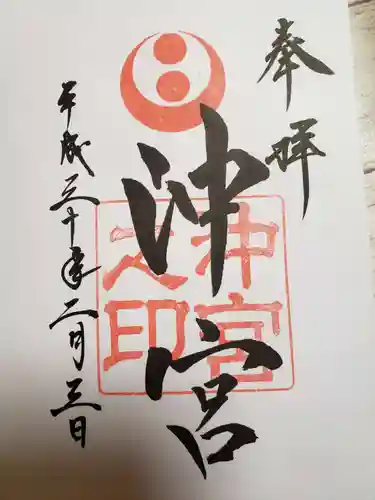 奉拝
沖宮
沖宮之印
平成三十年二月三日